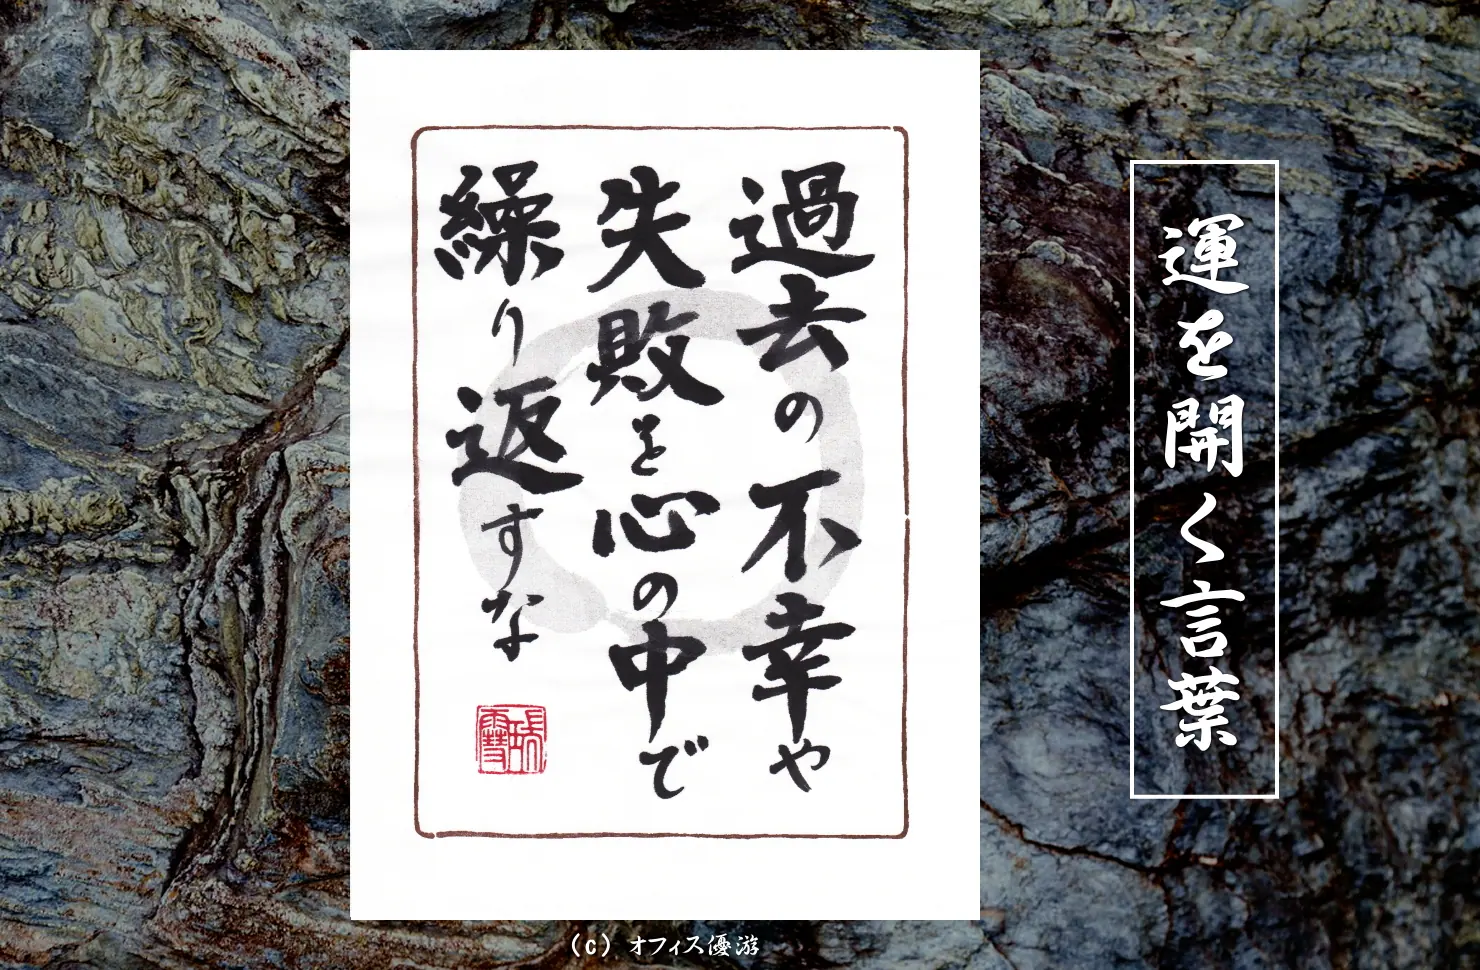 運を開く言葉
過去の不幸や
失敗を心の中で
繰り返すな
(c) オフィス優游